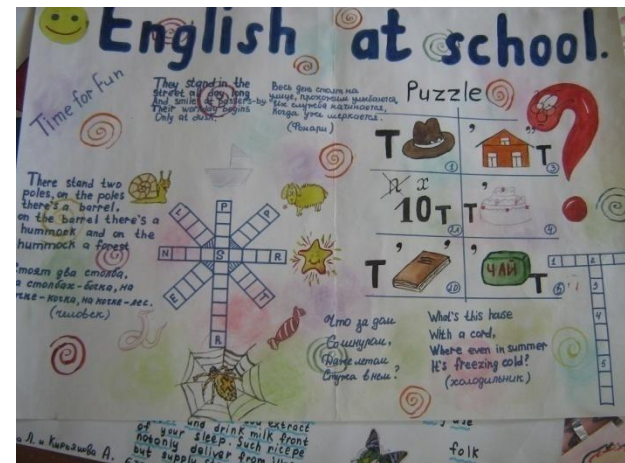 English at school.
Time for Fun
They stand in the
street all day long
And smile at passers-by
Their workday begins
Only at dusk.
Весь день стоят на
улице, прохожим улыбаются,
Их служба начинается,
Когда уже меркается.
(Фонари)
Puzzle
Т
1
, ,, Т
3
х
10т
2
Т '
4
Т , ,
10
ЧАЙ Т
6
There stand two
poles, on the poles
there's a barrel,
on the barrel there's a
hummock and on the
hummock a forest
Стоят два столба,
на столбах - бочка, на
бочке - кочка, на кочке - лес.
(человек)
L
P
P
N S R
E
T
R
Что за дом
Со шнуром,
Даже летом
Стужа в нём?
What's this house
With a cord,
Where even in summer
It's freezing cold?
(холодильник)
1 2
3
4
5
and drink milk front
of your sleep. Such
notonly deliver from
but supply
а Л. и Кирьянова А.
folk